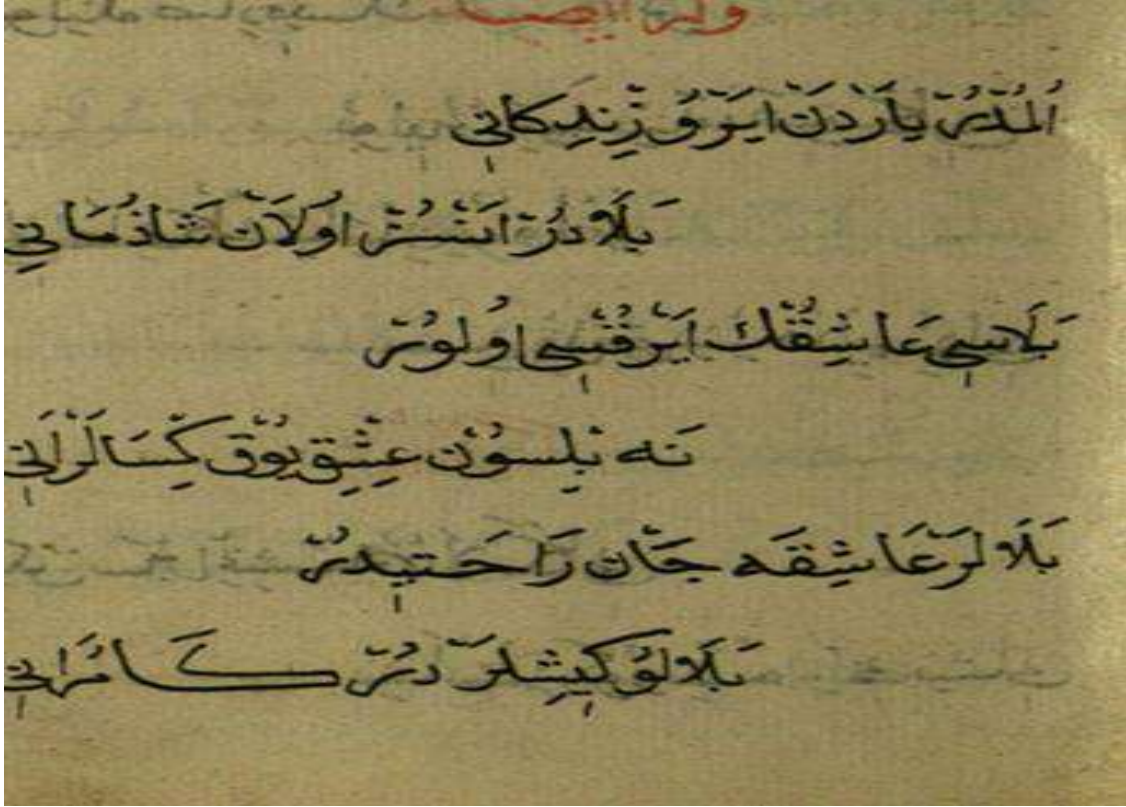 وله ايضا
اُلمُدُرْ يَارْدَنْ ايَرْوُ زِنْدِكَانِي
بَلَادُرْ اَنْسُزْ اوُلَانْ شَادُمَانِي
بَلَاسِي عَاشِقُڭ اَيْرُقْسِي اوُلوُرْ
نَه بِلِسوُنْ عِشْقِ يوُقْ كِسَالَرْ اَنِي
بَلَالَرْ عَاشِقَه جَانْ رَاحَتِيدُرْ
بَلَالوُ كِيشِلَرْ دُرُرْ كَامْرَانِي